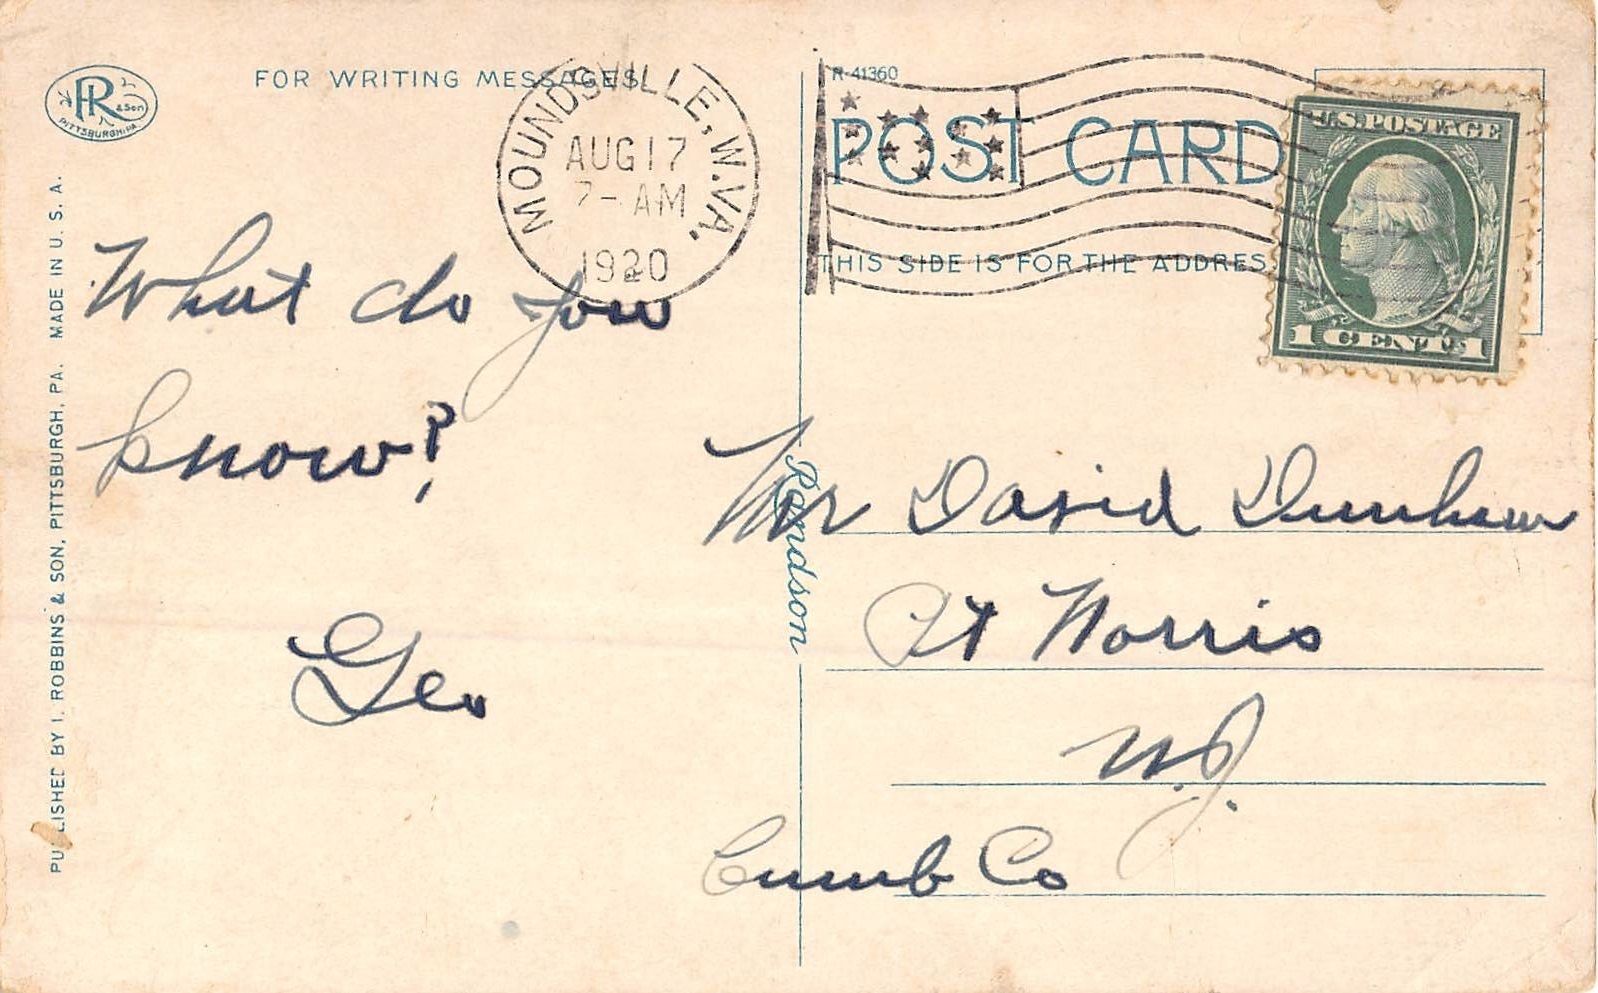 PR & Son
PITTSBURGH, PA.
FOR WRITING MESSAGES
MOUNDSVILLE, W.VA.
AUG 17
7-AM
1920
R-41360
POST CARD
THIS SIDE IS FOR THE ADDRES
U.S. POSTAGE
1 CENT 1
What do you
know?
Geo
Mr David Dunham
Pt Norris
N.J.
Cumb Co
Randson
PUBLISHED BY I. ROBBINS & SON, PITTSBURGH, PA. MADE IN U. S. A.